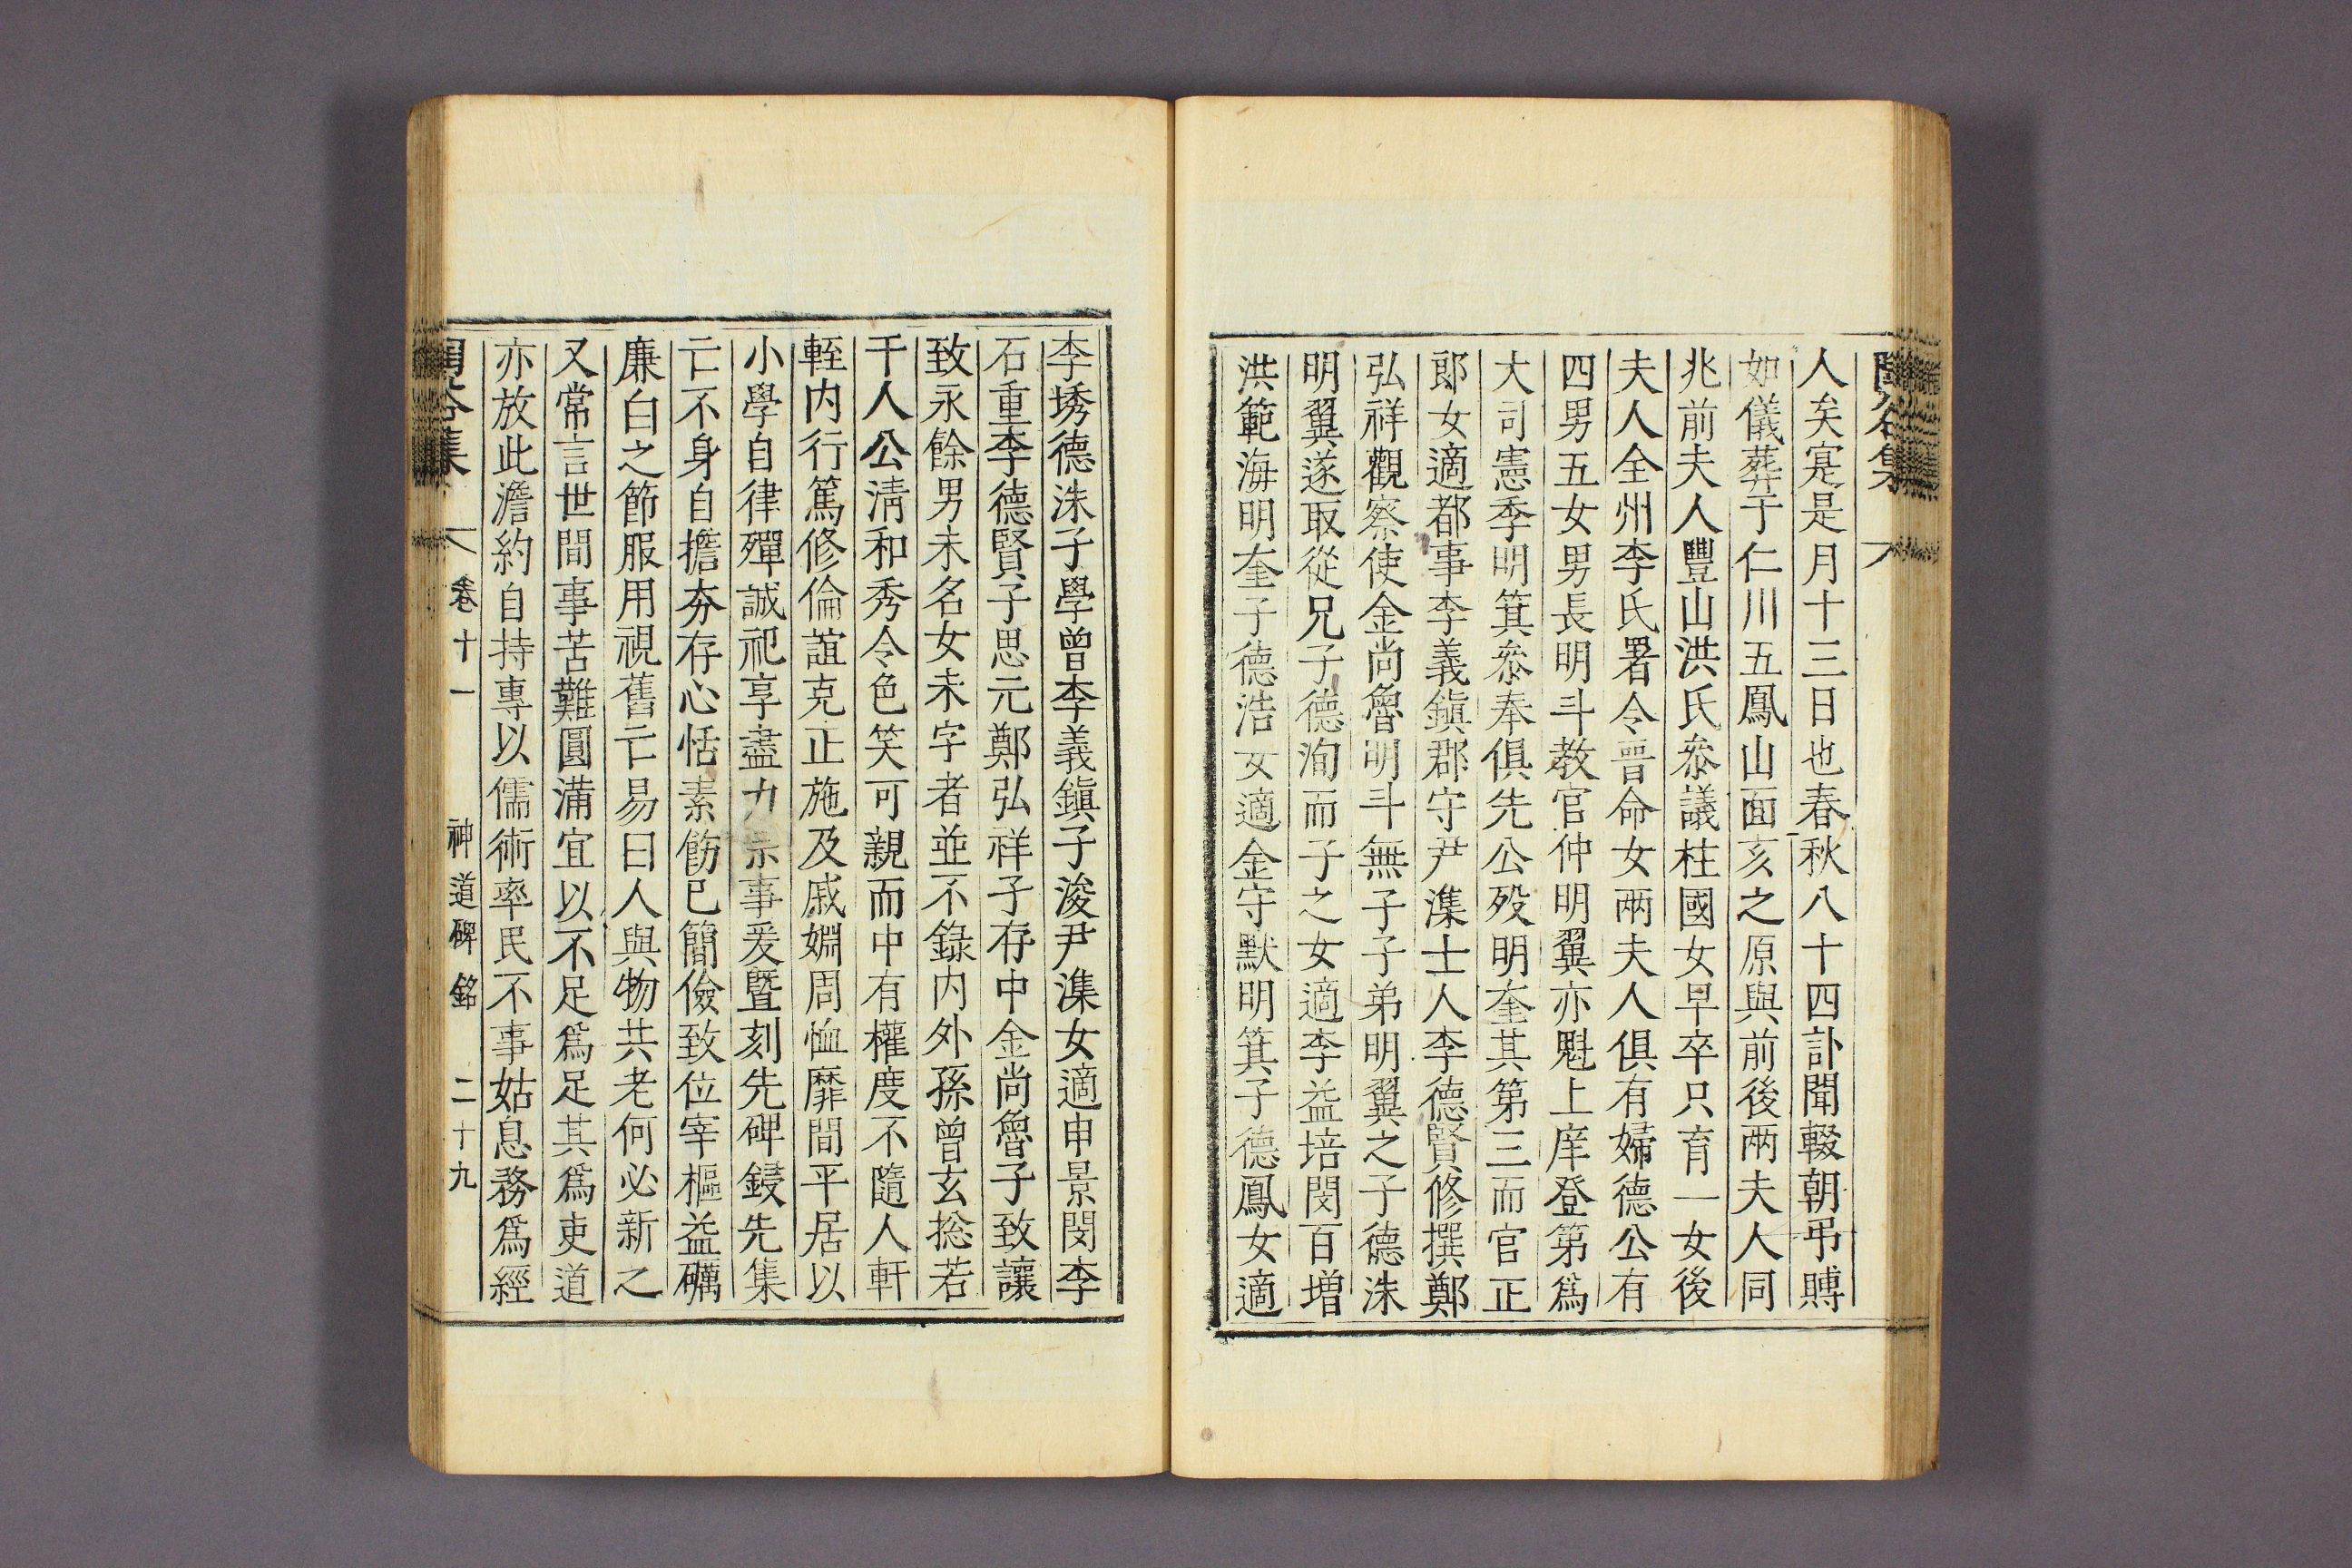 人矣寔是月十三日也春秋八十四訃聞輟朝弔賻
如儀葬于仁川五鳳山面亥之原與前後兩夫人同
兆前夫人豐山洪氏叅議柱國女早卒只育一女後
夫人全州李氏署令晉命女兩夫人俱有婦德公有
四男五女男長明斗教官仲明翼亦魁上庠登第爲
大司憲季明箕叅奉俱先公歿明奎其第三而官正
郞女適都事李義鎭郡守尹潗士人李德賢修撰鄭
弘祥觀察使金尙魯明斗無子子弟明翼之子德洙
明翼遂取從兄子德洵而子之女適李益培閔百增
洪範海明奎子德浩女適金守默明箕子德鳳女適
李琇德洙子學曾李義鎭子浚尹潗女適申景閔李
石重李德賢子思元鄭弘祥子存中金尙魯子致讓
致永餘男未名女未字者並不錄内外孫曾玄捴若
千人公淸和秀令色笑可親而中有權度不隨人軒
輊内行篤修倫誼克正施及戚婣周恤靡間平居以
小學自律殫誠祀享盡力宗事爰曁刻先碑鋟先集
亡不身自擔夯存心恬素飭已簡儉致位宰樞益礪
廉白之節服用視舊亡易曰人與物共老何必新之
又常言世間事苦難圓滿宜以不足爲足其爲吏道
亦放此澹約自持專以儒術率民不事姑息務爲經
卷十一 神道碑銘 二十九